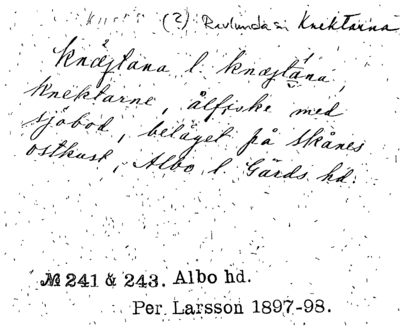 (2) Ravlunda sn Knektarna
knæjtana l. knæjtána,
knektarne, ålfiske med
sjöbod, beläget på Skånes
ostkust, Albo l. Gärds hd.
M 241 & 243. Albo hd.
Per Larsson 1897-98.